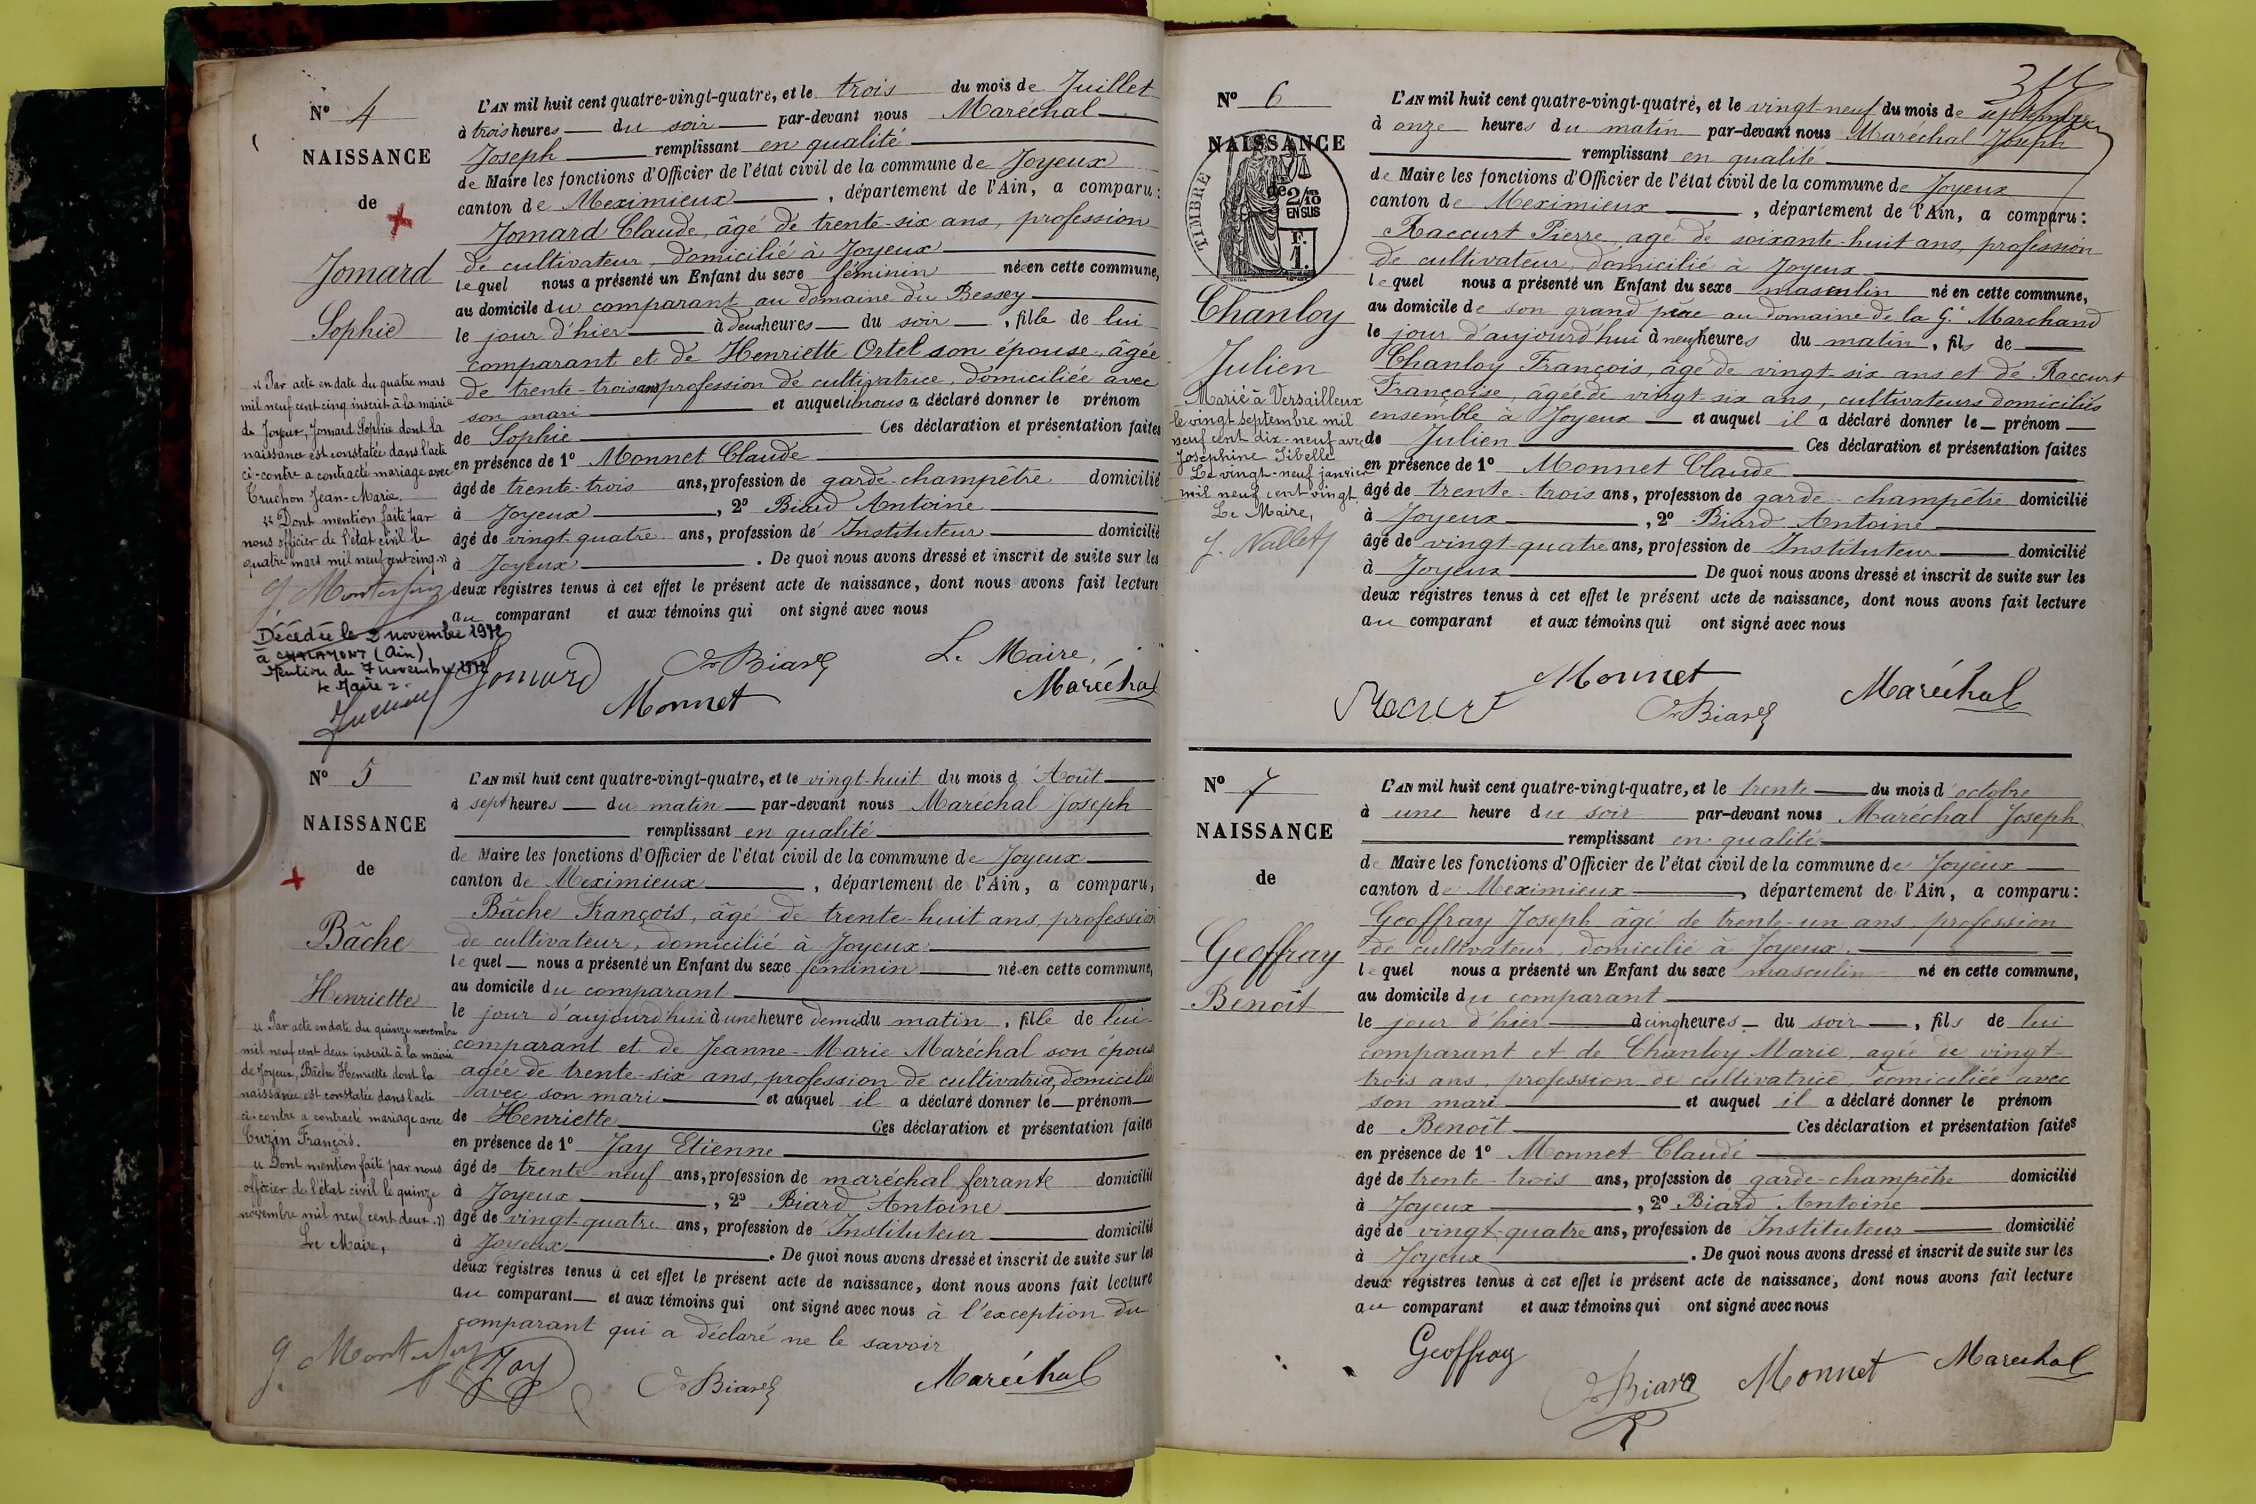 Nº 4
NAISSANCE
de
Jomard
Sophie
« Par acte en date du quatre mars
mil neuf cent cinq inscrit à la mairie
de Joyeux, Jomard Sophie dont la
naissance est constatée dans l'acte
ci-contre a contracté mariage avec
Truchon Jean-Marie.
« Dont mention faite par
nous officier de l'état civil le
quatre mars mil neuf cent cinq »
Décédée le 2 novembre 1972
à CHALAMONT (Ain)
Mention du 7 novembre 1972
Le Maire
L'AN mil huit cent quatre-vingt-quatre, et le trois du mois de Juillet
à trois heures du soir par-devant nous Maréchal
Joseph remplissant en qualité
de Maire les fonctions d'Officier de l'état civil de la commune de Joyeux
canton de Meximieux, département de l'Ain, a comparu:
Jomard Claude, âgé de trente-six ans, profession
de cultivateur, domicilié à Joyeux
lequel nous a présenté un Enfant du sexe féminin né en cette commune,
au domicile du comparant au domaine du Bessey
le jour d'hier à deux heures du soir, fille de lui
comparant et de Henriette Ortel son épouse, âgée
de trente-trois ans profession de cultivatrice, domiciliée avec
son mari et auquel nous a déclaré donner le prénom
de Sophie Ces déclaration et présentation faites
en présence de 1º Monnet Claude
âgé de trente-trois ans, profession de garde-champêtre domicilié
à Joyeux, 2º Biard Antoine
âgé de vingt-quatre ans, profession de Instituteur domicilié
à Joyeux. De quoi nous avons dressé et inscrit de suite sur les
deux registres tenus à cet effet le présent acte de naissance, dont nous avons fait lecture
au comparant et aux témoins qui ont signé avec nous
Jomard Biard Le Maire,
Monnet Maréchal
Nº 5
NAISSANCE
de
Bâche
Henriette
« Par acte en date du quinze novembre
mil neuf cent deux inscrit à la mairie
de Joyeux, Bâche Henriette dont la
naissance est constatée dans l'acte
ci-contre a contracté mariage avec
Cuzin François.
« Dont mention faite par nous
officier de l'état civil le quinze
novembre mil neuf cent deux. »
Le Maire,
L'AN mil huit cent quatre-vingt-quatre, et le vingt-huit du mois d'Août
à sept heures du matin par-devant nous Maréchal Joseph
remplissant en qualité
de Maire les fonctions d'Officier de l'état civil de la commune de Joyeux
canton de Meximieux, département de l'Ain, a comparu,
Bâche François, âgé de trente-huit ans, profession
de cultivateur, domicilié à Joyeux
lequel nous a présenté un Enfant du sexe féminin né en cette commune,
au domicile du comparant
le jour d'aujourd'hui à une heure demie du matin, fille de lui
comparant et de Jeanne-Marie Maréchal son épouse
agée de trente-six ans, profession de cultivatrice, domiciliée
avec son mari et auquel il a déclaré donner le prénom
de Henriette Ces déclaration et présentation faites
en présence de 1º Jay Etienne
âgé de trente-neuf ans, profession de maréchal ferrant domicilié
à Joyeux, 2º Biard Antoine
âgé de vingt-quatre ans, profession de Instituteur domicilié
à Joyeux. De quoi nous avons dressé et inscrit de suite sur les
deux registres tenus à cet effet le présent acte de naissance, dont nous avons fait lecture
au comparant et aux témoins qui ont signé avec nous à l'exception du
comparant qui a déclaré ne le savoir
Jay Biard Maréchal
Nº 6
NAISSANCE
de
TIMBRE
2/10
EN SUS
F.
1.
Chanloy
Julien
Marié à Versailleux
le vingt septembre mil
neuf cent dix-neuf avec
Joséphine Sibelle
Le vingt-neuf janvier
mil neuf cent vingt
Le Maire,
J. Nallet
L'AN mil huit cent quatre-vingt-quatre, et le vingt-neuf du mois de septembre
à onze heures du matin par-devant nous Maréchal Joseph
remplissant en qualité
de Maire les fonctions d'Officier de l'état civil de la commune de Joyeux
canton de Meximieux, département de l'Ain, a comparu:
Raccurt Pierre, âgé de soixante-huit ans, profession
de cultivateur, domicilié à Joyeux
lequel nous a présenté un Enfant du sexe masculin né en cette commune,
au domicile de son grand père au domaine de la Ge Marchand
le jour d'aujourd'hui à neuf heures du matin, fils de
Chanloy François, âgé de vingt-six ans et de Raccurt
Françoise, âgée de vingt-six ans, cultivateurs domiciliés
ensemble à Joyeux et auquel il a déclaré donner le prénom
de Julien Ces déclaration et présentation faites
en présence de 1º Monnet Claude
âgé de trente-trois ans, profession de garde-champêtre domicilié
à Joyeux, 2º Biard Antoine
âgé de vingt-quatre ans, profession de Instituteur domicilié
à Joyeux De quoi nous avons dressé et inscrit de suite sur les
deux registres tenus à cet effet le présent acte de naissance, dont nous avons fait lecture
au comparant et aux témoins qui ont signé avec nous
Monnet
Racurt Biard Maréchal
Nº 7
NAISSANCE
de
Geoffray
Benoît
L'AN mil huit cent quatre-vingt-quatre, et le trente du mois d'octobre
à une heure du soir par-devant nous Maréchal Joseph
remplissant en qualité
de Maire les fonctions d'Officier de l'état civil de la commune de Joyeux
canton de Meximieux, département de l'Ain, a comparu:
Geoffray Joseph âgé de trente-un ans, profession
de cultivateur, domicilié à Joyeux.
lequel nous a présenté un Enfant du sexe masculin né en cette commune,
au domicile du comparant
le jour d'hier à cinq heures du soir, fils de lui
comparant et de Chanloy Marie, agée de vingt-
trois ans, profession de cultivatrice, domiciliée avec
son mari et auquel il a déclaré donner le prénom
de Benoît Ces déclaration et présentation faites
en présence de 1º Monnet Claude
âgé de trente-trois ans, profession de garde-champêtre domicilié
à Joyeux, 2º Biard Antoine
âgé de vingt-quatre ans, profession de Instituteur domicilié
à Joyeux. De quoi nous avons dressé et inscrit de suite sur les
deux registres tenus à cet effet le présent acte de naissance, dont nous avons fait lecture
au comparant et aux témoins qui ont signé avec nous
Geoffray Biard Monnet Maréchal